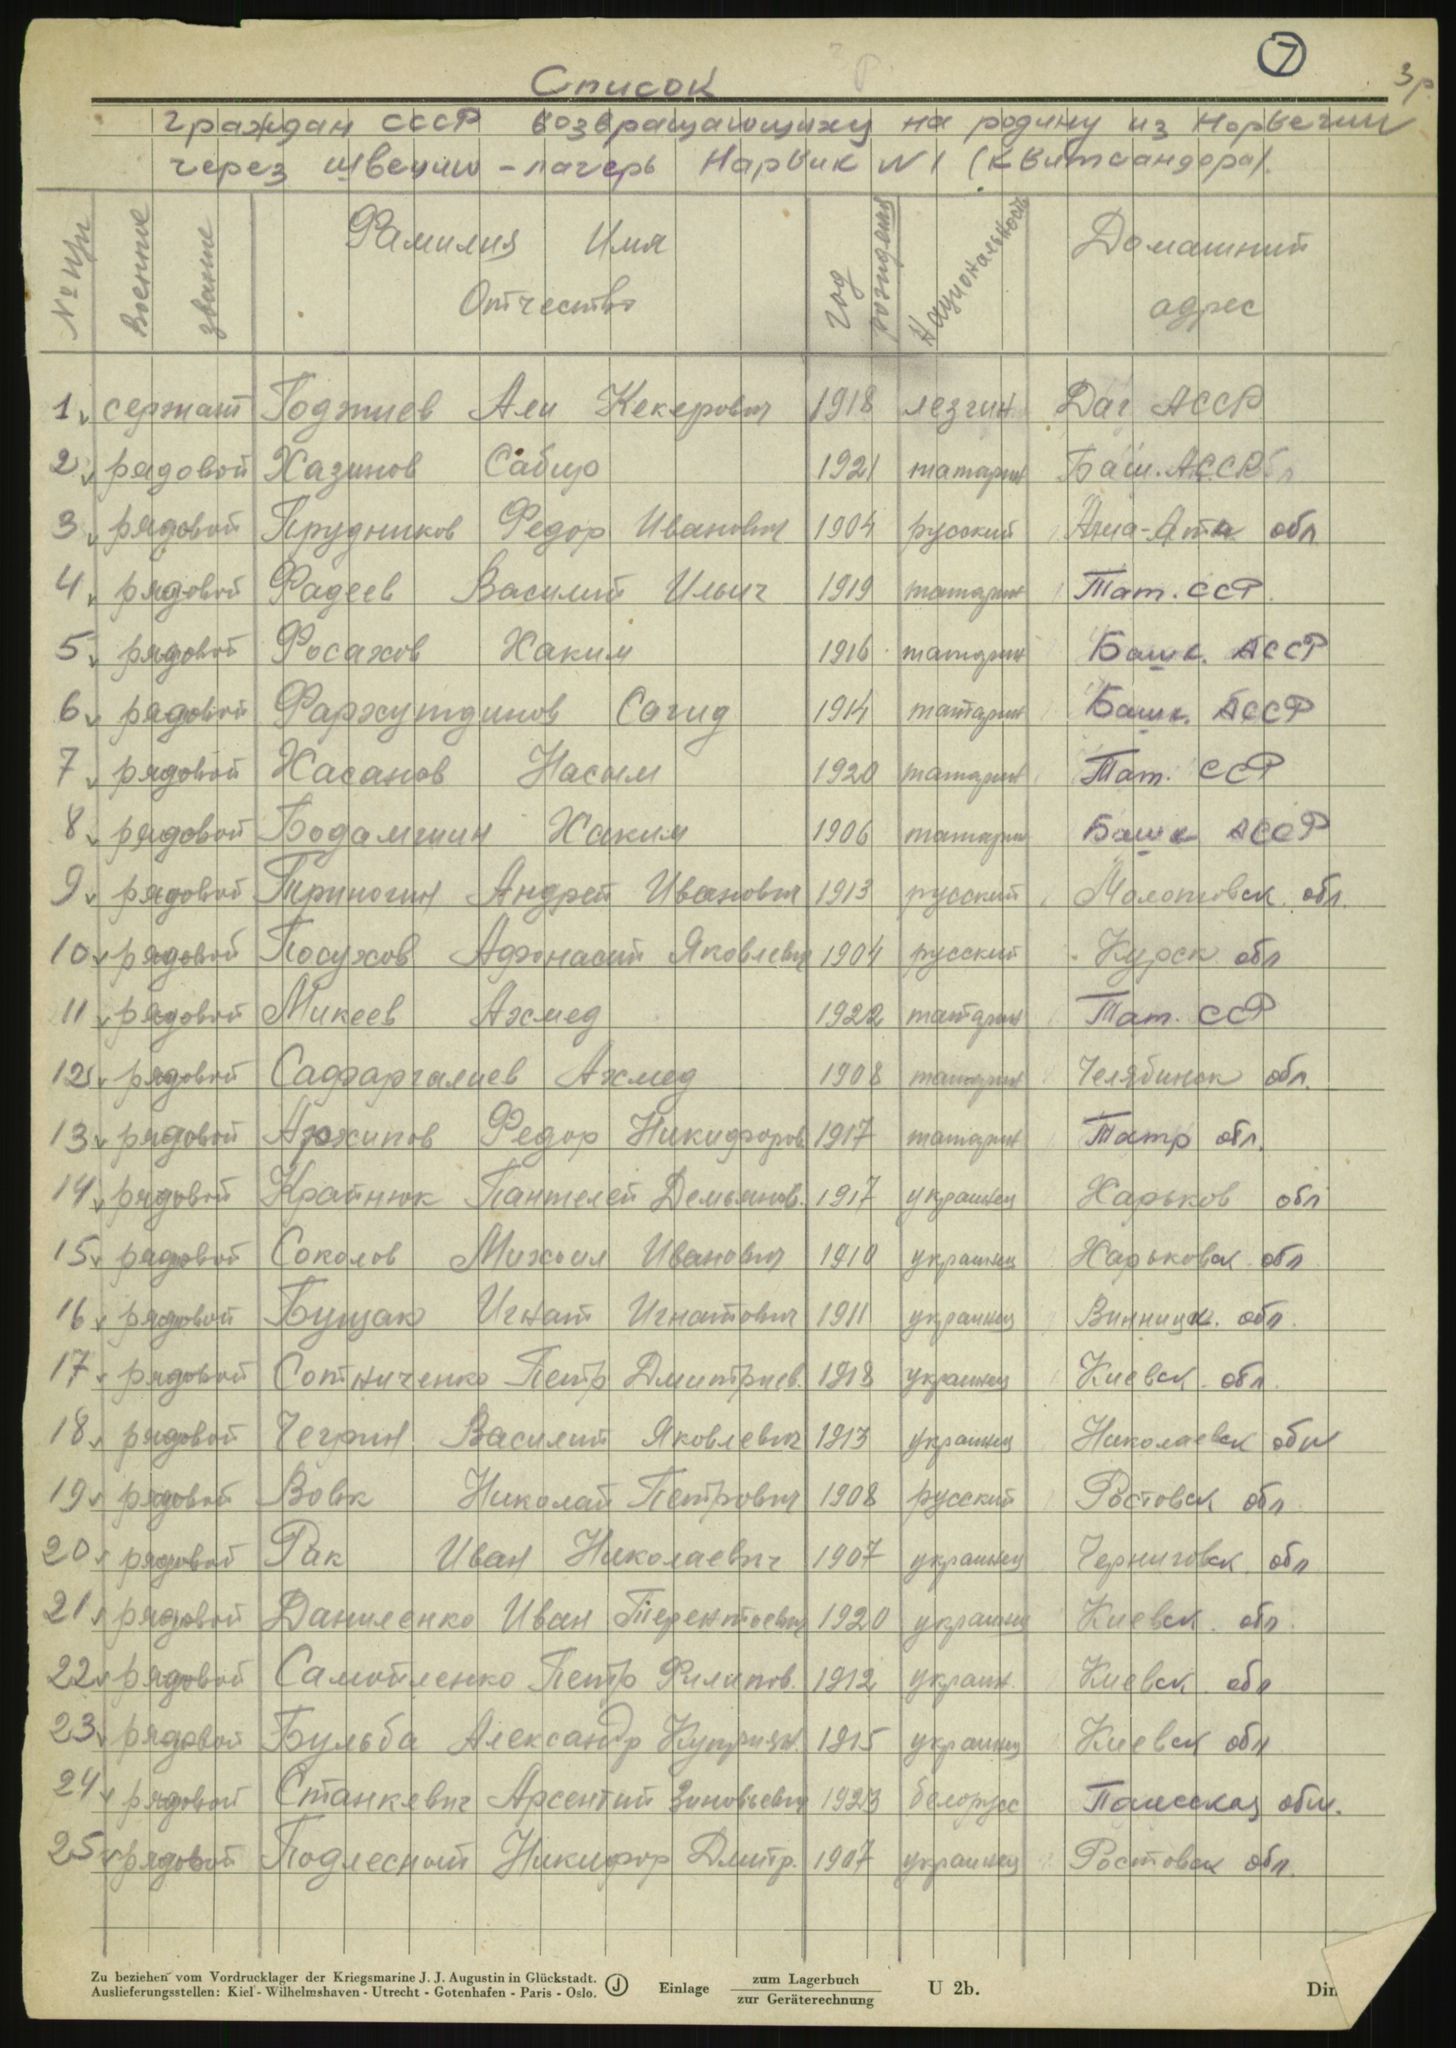 7
3р
Список
граждан СССР возвращающихся на родину из Норвегии
через Швецию - лагерь Нарвик N 1 (Квитсандора).
№ п/п Военное звание Фамилия Имя Отчество Год рождения Национальность Домашний адрес
1 сержант Годжиев Али Кекерович 1918 лезгин Даг АССР
2 рядовой Хазинов Сабир 1921 татарин Баш. АССР
3 рядовой Прудников Федор Иванович 1904 русский Алма-Ата обл
4 рядовой Фадеев Василий Ильич 1919 татарин Тат. ССР.
5 рядовой Фосахов Хаким 1916 татарин Башк. АССР
6 рядовой Фархутдинов Сагид 1914 татарин Башк. АССР
7 рядовой Хасанов Насым 1920 татарин Тат. ССР
8 рядовой Бодамшин Хаким 1906 татарин Башк АССР
9 рядовой Триногин Андрей Иванович 1913 русский Молотовск. обл.
10 рядовой Посухов Афонасий Яковлевич 1904 русский Курск обл
11 рядовой Микеев Ахмед 1922 татарин Тат. ССР
12 рядовой Сафаргалиев Ахмед 1908 татарин Челябинск обл.
13 рядовой Архипов Федор Никифоров 1917 татарин Татр обл.
14 рядовой Крайнюк Пантелей Демьянов. 1917 украинец Харьков обл
15 рядовой Соколов Михаил Иванович 1910 украинец Харьковск обл
16 рядовой Бущак Игнат Игнатович 1911 украинец Винницк. обл.
17 рядовой Сотниченко Петр Дмитриев. 1918 украинец Киевск. обл.
18 рядовой Чегрин Василий Яковлевич 1913 украинец Николаевск обл
19 рядовой Вовк Николай Петрович 1908 русский Ростовск обл
20 рядовой Рак Иван Николаевич 1907 украинец Черниговск. обл
21 рядовой Даниленко Иван Терентьевич 1920 украинец Киевск. обл.
22 рядовой Самойленко Петр Филипов. 1912 украин. Киевск. обл
23 рядовой Бульба Александр Куприян. 1915 украинец Киевск обл
24 рядовой Станкевич Арсентий Зиновьевич 1923 белорусс обл.
25 рядовой Подлесный Никифор Дмитр. 1907 украинец Ростовск обл.
Zu beziehen vom Vordrucklager der Kriegsmarine J. J. Augustin in Glückstadt.
Auslieferungsstellen: Kiel - Wilhelmshaven - Utrecht - Gotenhafen - Paris - Oslo.
J
Einlage zum Lagerbuch
zur Geräterechnung
U 2b.
Din